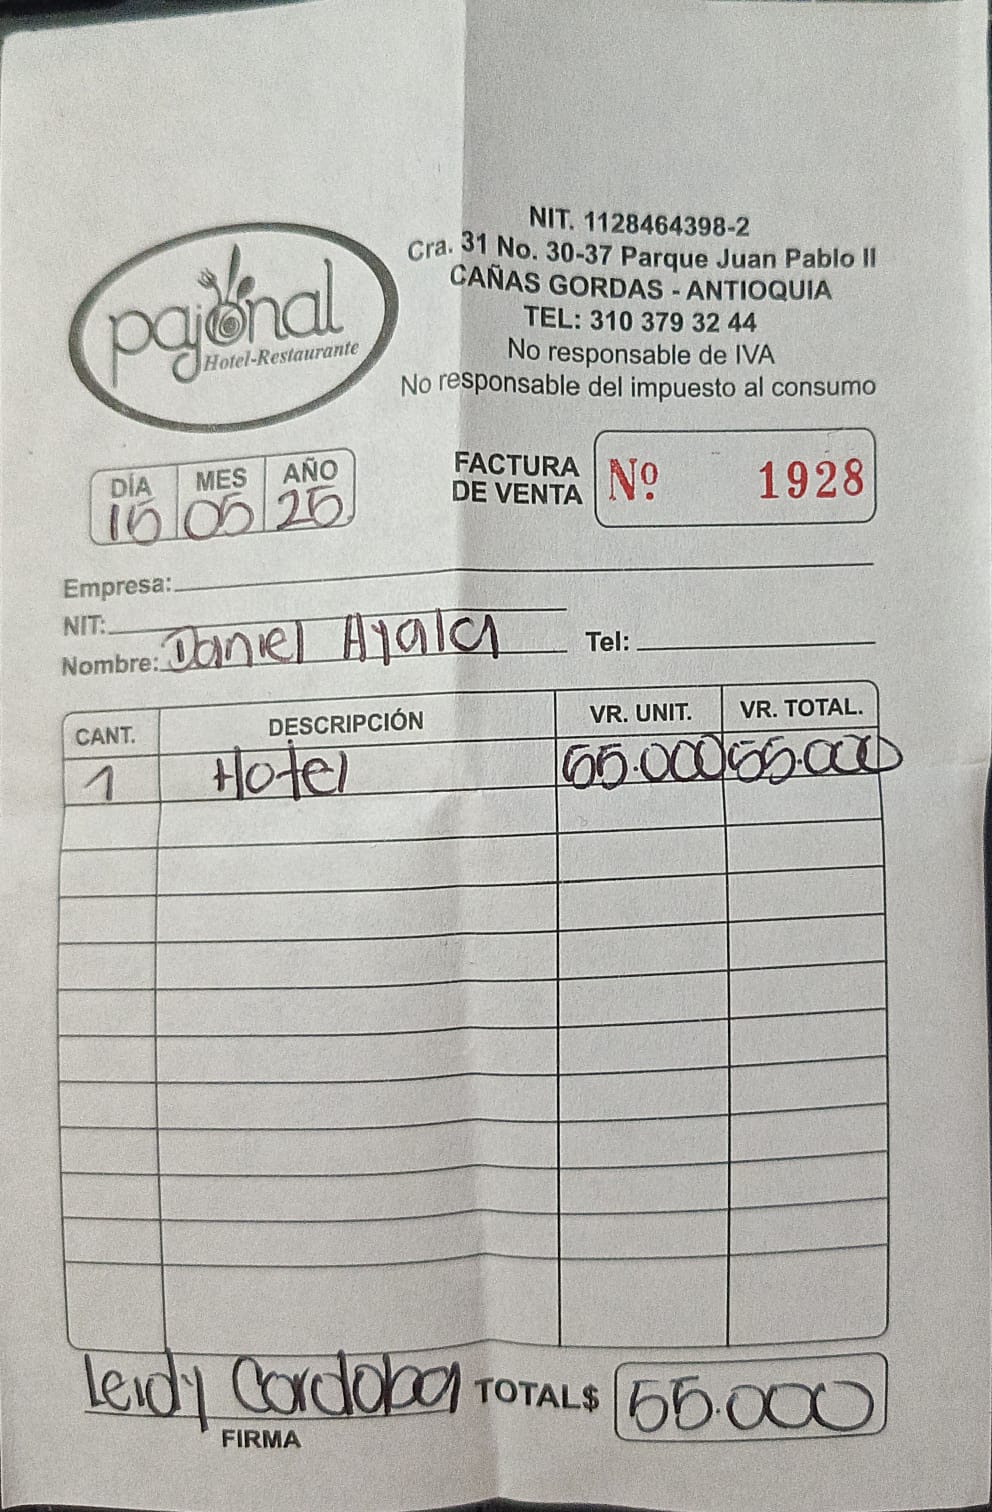 pajonal
Hotel-Restaurante
NIT. 1128464398-2
Cra. 31 No. 30-37 Parque Juan Pablo II
CAÑAS GORDAS - ANTIOQUIA
TEL: 310 379 32 44
No responsable de IVA
No responsable del impuesto al consumo
DÍA MES AÑO
15 05 25
FACTURA
DE VENTA
Nº. 1928
Empresa:
NIT:
Nombre: Daniel Ayala Tel:
CANT. DESCRIPCIÓN VR. UNIT. VR. TOTAL.
1 Hotel 55.000 55.000
Leidy Cordoba TOTAL$ 55.000
FIRMA